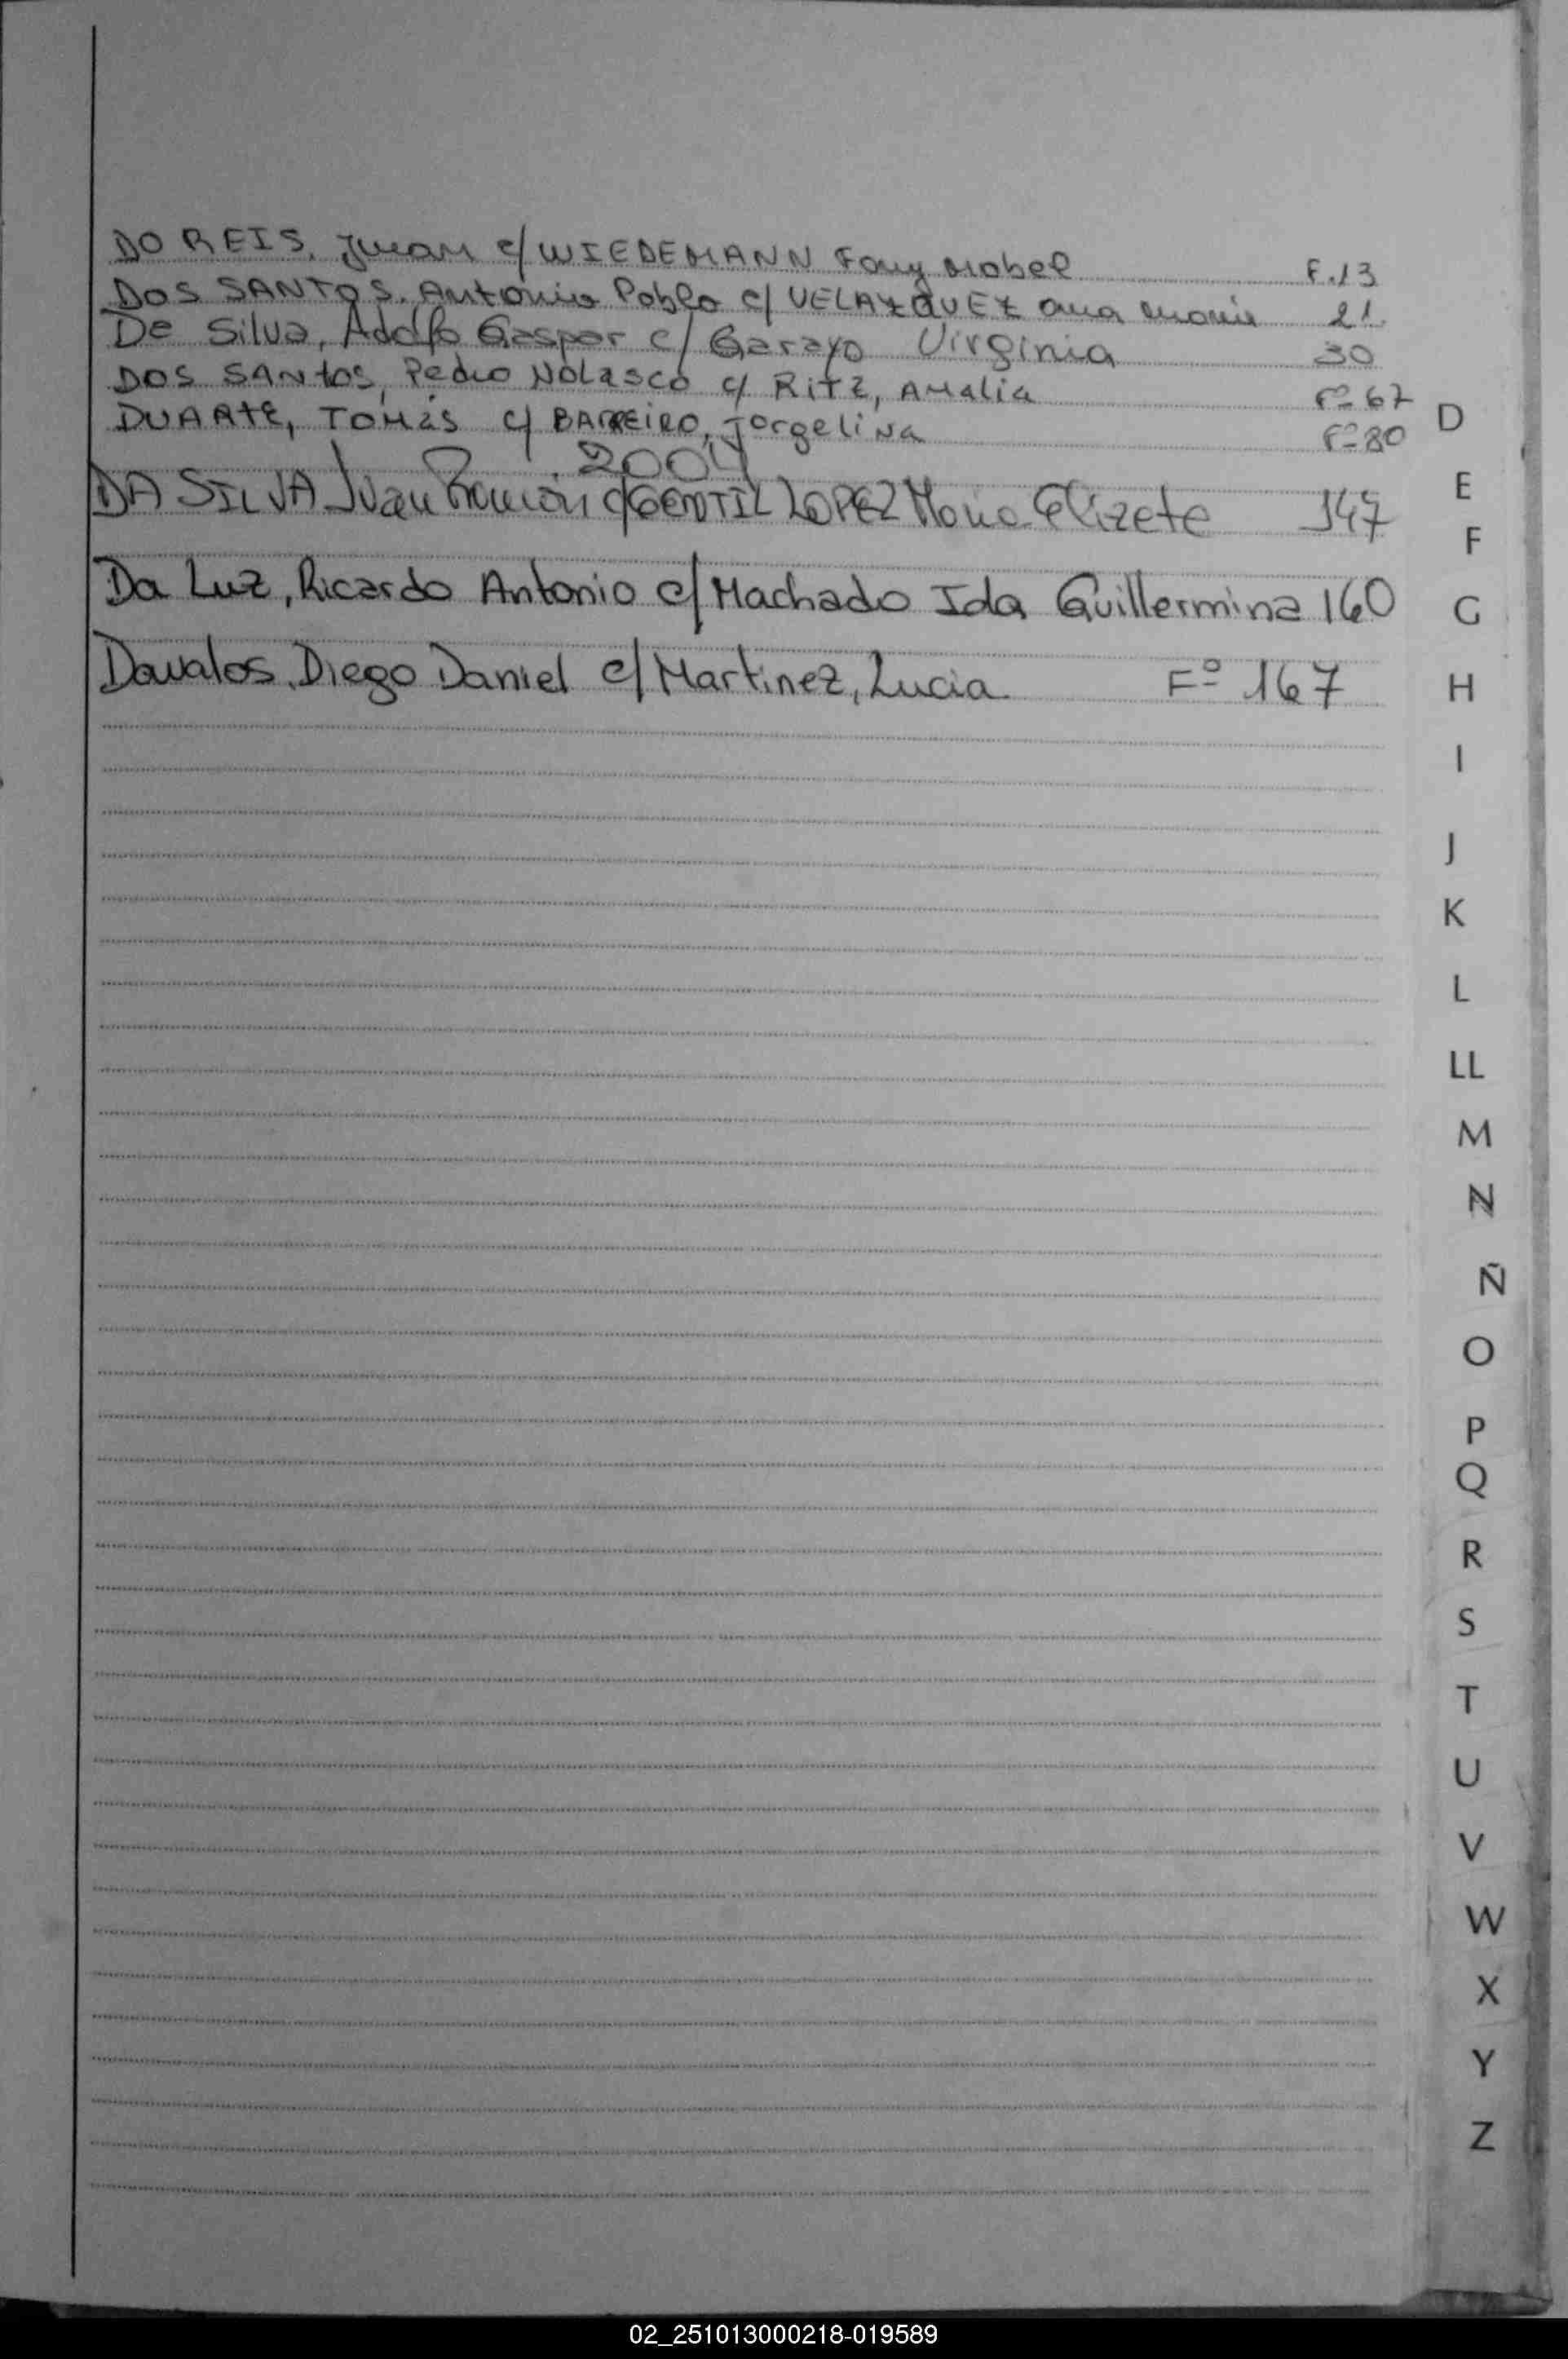 DO REIS, Juan c/ WIEDEMANN Fany Mabel F.13
DOS SANTOS, Antonio Pablo c/ VELAZQUEZ Ana Maria 21
De Silva, Adolfo Gaspar c/ Garayo Virginia 30
DOS SANtos, Pedro NOLasco c/ RitZ, AMalia Fº 67
DUARtE, TOMás c/ BARREIRO, Jorgelina Fº 80
2004
DA SILVA Juan Ramón c/ GENTIL LOPEZ Maria Elizete 147
Da Luz, Ricardo Antonio c/ Machado Ida Guillermina 160
Davalos, Diego Daniel c/ Martinez, Lucia Fº 167
D
E
F
G
H
I
J
K
L
LL
M
N
Ñ
O
P
Q
R
S
T
U
V
W
X
Y
Z
02_251013000218-019589